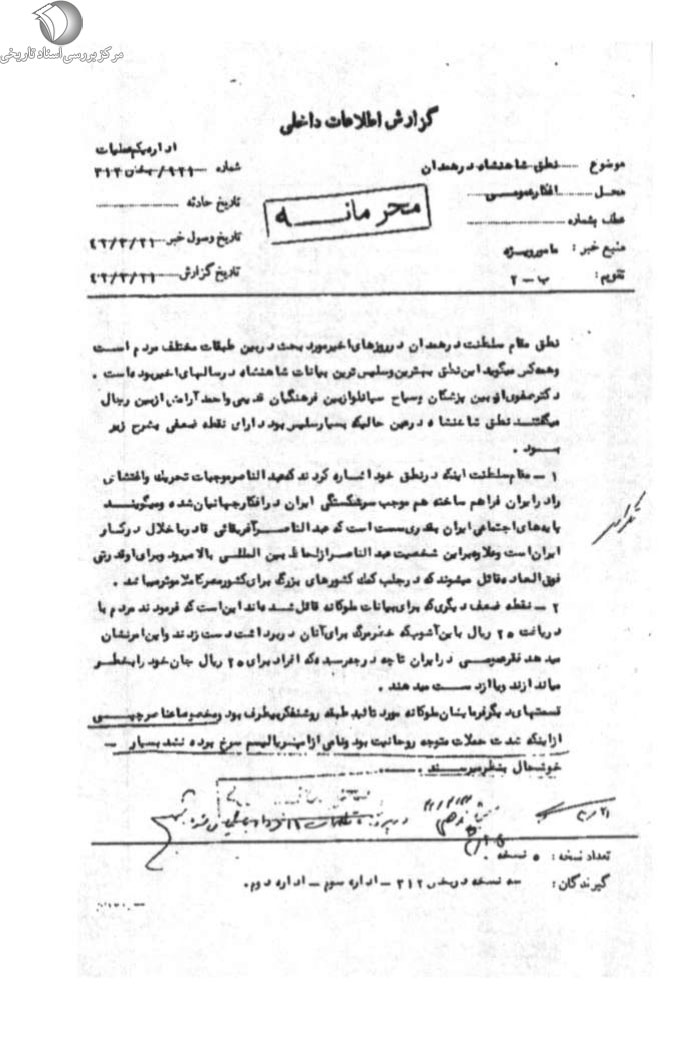 مرکز بررسی اسناد تاریخی
گزارش اطلاعات داخلی
اداره یکم عملیات
موضوع نطق شاهنشاه در همدان
شماره ۹۲۱/بخش ۳۱۲
محل افکار عمومی
تاریخ حادثه
محرمانه
عطف بشماره
تاریخ وصول خبر ۴۲/۳/۲۱
منبع خبر : مامور ویژه
تاریخ گزارش ۴۲/۳/۲۱
تقویم : ب-۲
نطق مقام سلطنت در همدان در روزهای اخیر مورد بحث در بین طبقات مختلف مردم است
و همه کس میگوید این نطق بهترین و سلیس ترین بیانات شاهنشاه در سالهای اخیر بوده است .
دکتر صفوی از بین پزشکان و سیاح سپانلو از بین فرهنگیان قدیمی و احمد آرامش از بین رجال
میگفتند نطق شاهنشاه در عین حالیکه بسیار سلیس بود دارای نقطه ضعفی بشرح زیر
بود .
۱ - مقام سلطنت اینکه در نطق خود اشاره کردند که عبدالناصر موجبات تحریک و اغتشاش
را در ایران فراهم ساخته هم موجب سرشکستگی ایران در افکار جهانیان شده و میگویند
پایه های اجتماعی ایران بقدری سست است که عبدالناصر آفریقائی قادر باخلال در کار
ایران است و علاوه بر این شخصیت عبدالناصر از لحاظ بین المللی بالا میرود و برای او قدرتی
فوق العاده قائل میشوند که در جلب کمک کشورهای بزرگ برای کشور مصر کاملا موثر میباشد .
۲ - نقطه ضعف دیگری که برای بیانات ملوکانه قائل شده اند این است که فرمودند مردم با
دریافت ۲۵ ریال باین آشوب که خطر مرگ برای آنان در برداشت دست زدند و این امر نشان
میدهد فقر عمومی در ایران تا چه درجه رسیده که افراد برای ۲۵ ریال جان خود را بخطر
میاندازند و یا از دست میدهند .
قسمتهای دیگر فرمایشان ملوکانه مورد تائید طبقه روشنفکر بیطرف بود و مخصوصا عناصر چپی
از اینکه شدت حملات متوجه روحانیت بود و نامی از امپریالیسم سرخ برده نشد بسیار -
خوشحال بنظر میرسند .
تعداد نسخه : ۵ نسخه .
گیرندگان : سه نسخه در بخش ۳۱۲ - اداره سوم - اداره دوم .